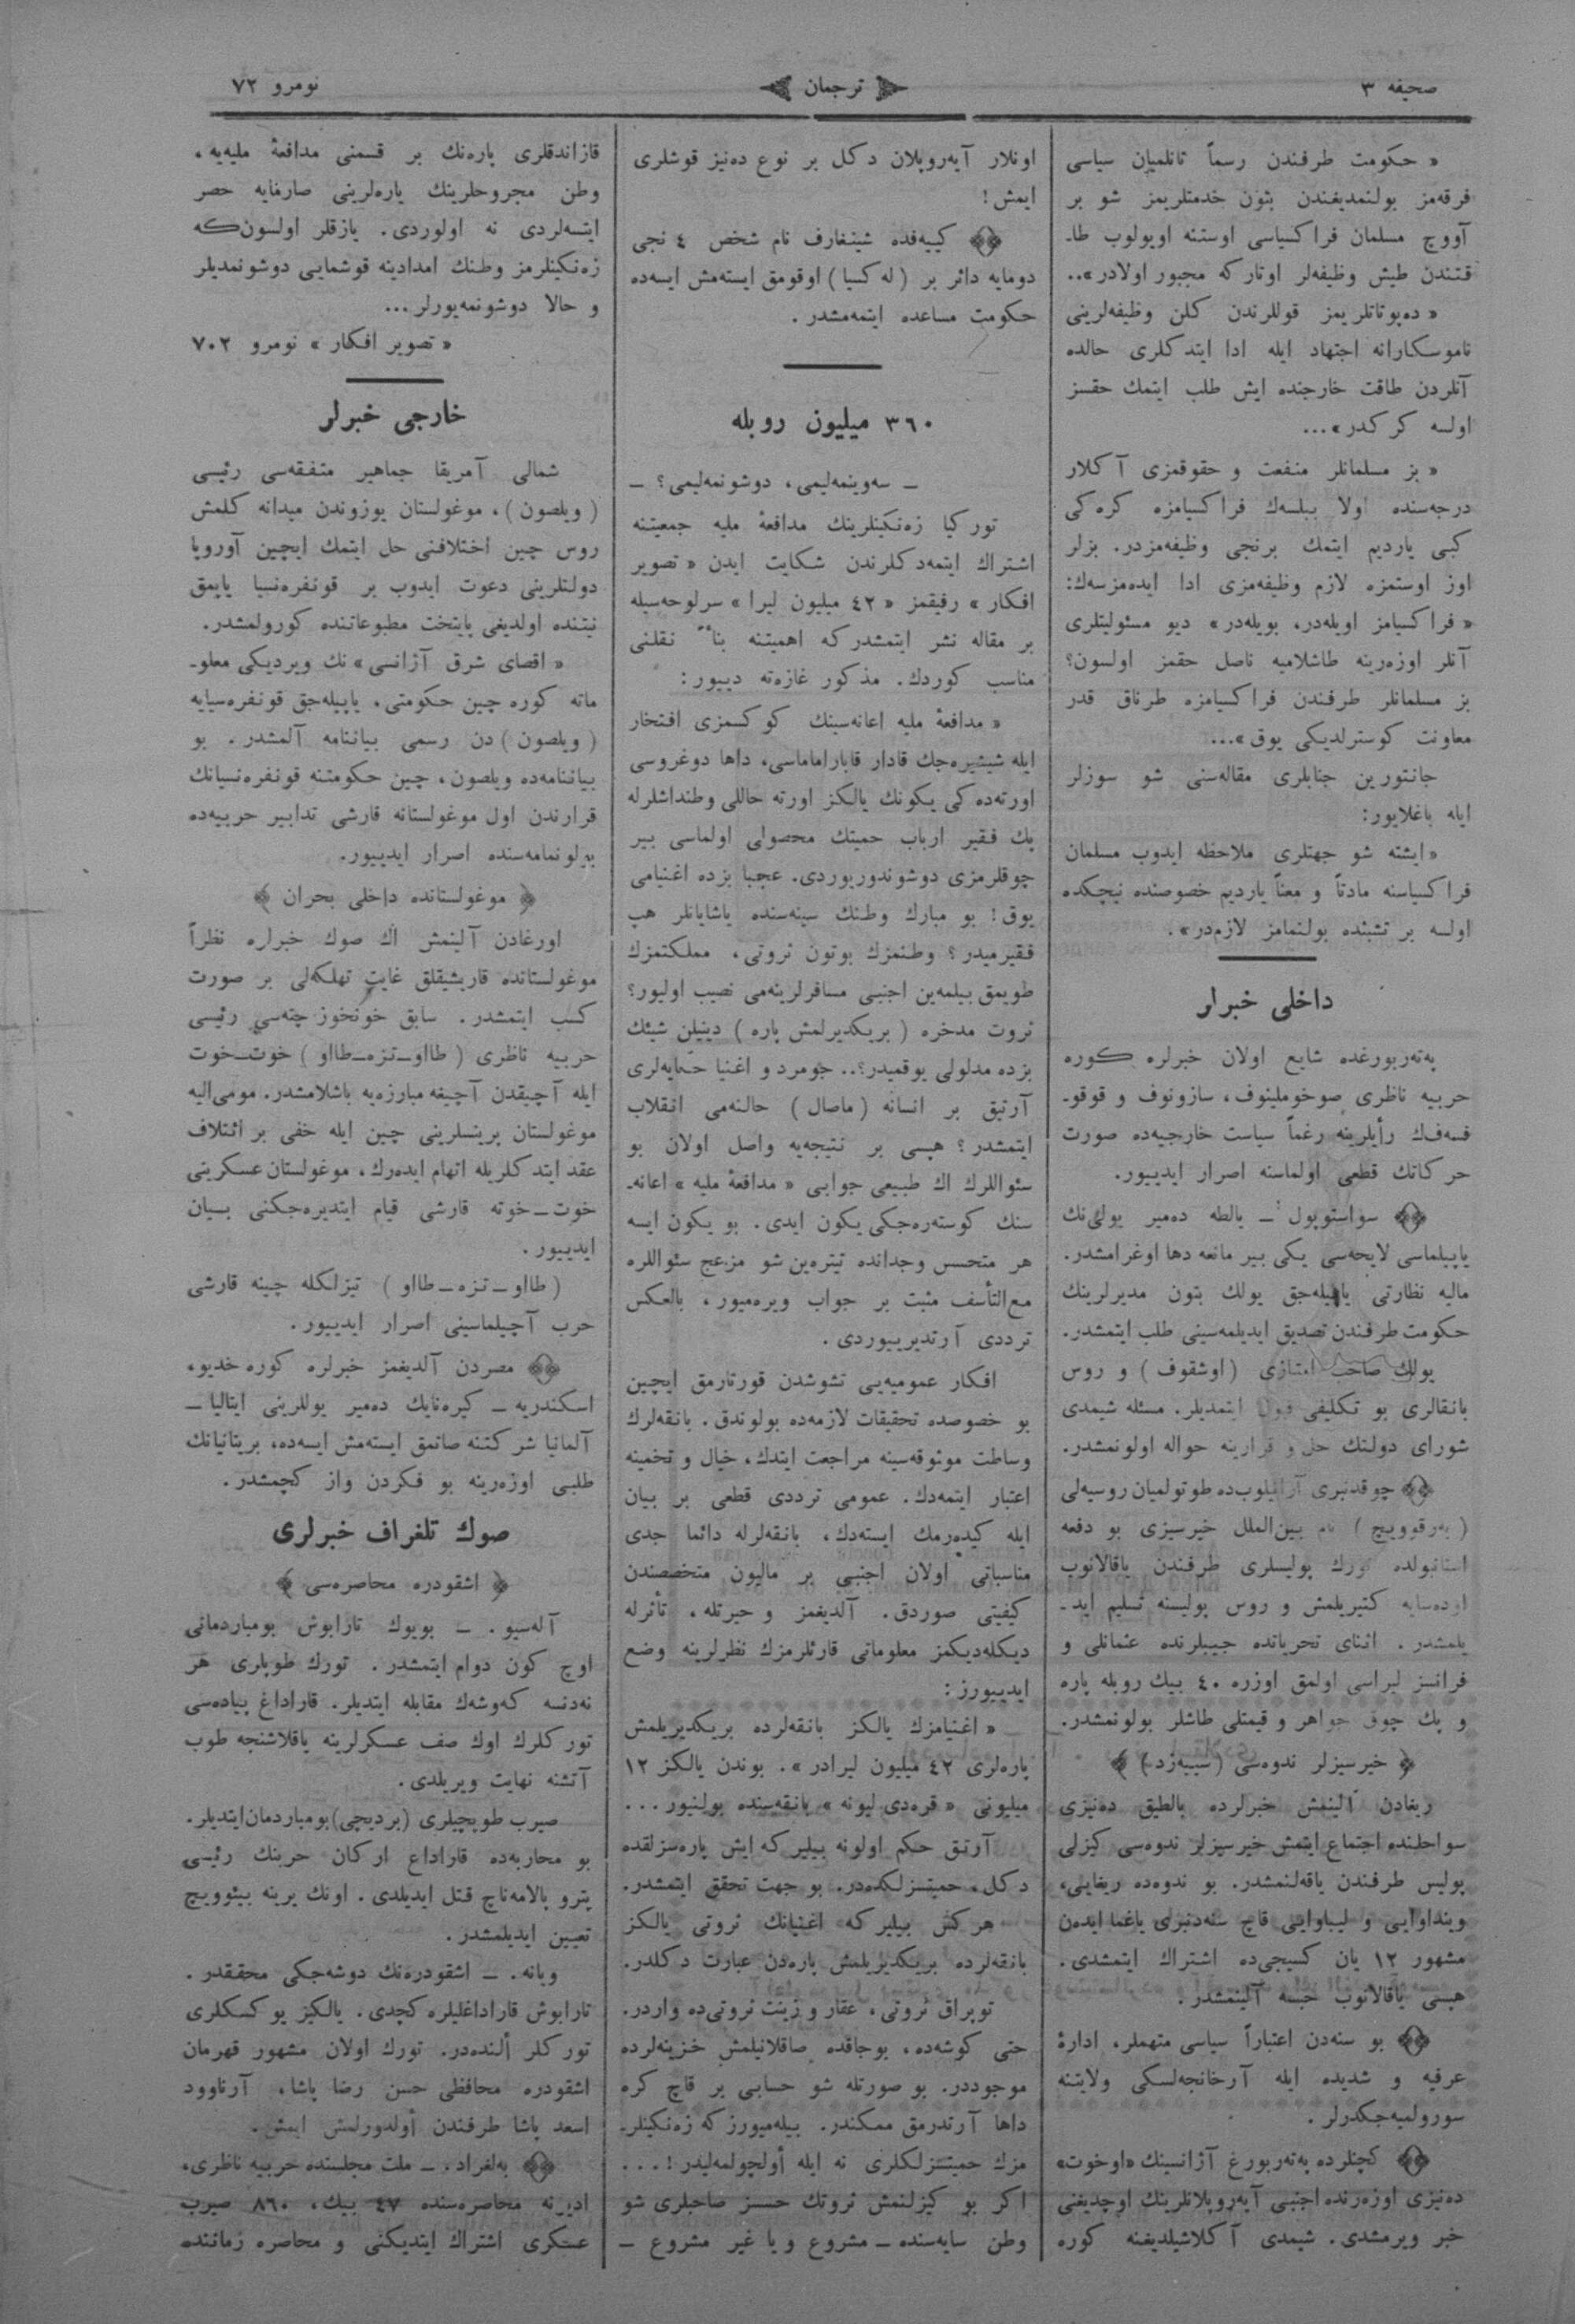 صحيفه ٣
ترجمان
نومرو ٧٢
« حكومت طرفندن رسماً تانلميان سياسى
فرقه‌مز بولنمديغندن بتون خدمتلريمز شو بر
آووچ مسلمان فراكسياسى اوستنه اويولوب طا‍ـ
قتندن طيش وظيفه‌لر اوتاركه مجبور اولادر»..
« ده‌پوتاتلريمز قوللرندن كلن وظيفه‌لرينى
ناموسكارانه اجتهاد ايله ادا ايتدكلرى حالده
آنلردن طاقت خارجنده ايش طلب ايتمك حقسز
اولسه كركدر»...
« بز مسلمانلر منفعت و حقوقمزى آكلار
درجه‌سنده اولا بيلسه‌ك فراكسيامزه كره‌كى
كبى يارديم ايتمك برنجى وظيفه‌مزدر. بزلر
اوز اوستمزه لازم وظيفه‌مزى ادا ايده‌مزسه‌ك:
« فراكسيامز اويله‌در، بويله‌در» ديو مسئوليتلرى
آنلر اوزه‌رينه طاشلاميه ناصل حقمز اولسون؟
بز مسلمانلر طرفندن فراكسيامزه طرناق قدر
معاونت كوسترلديكى يوق»...
جانتورين جنابلرى مقاله‌سنى شو سوزلر
ايله باغلايور:
«ايشته شو جهتلرى ملاحظه ايدوب مسلمان
فراكسياسنه مادتاً و معناً يارديم خصوصنده نيچكده
اولسه بر تشبثده بولنمامز لازم‌در».
داخلى خبرلر
په‌ته‌ربورغده شايع اولان خبرلره كوره
حربيه ناظرى صوخوملينوف، سازونوف و قوقو‍ـ
فسه‌فك رأيلرينه رغماً سياست خارجيه‌ده صورت
حركاتك قطعى اولماسنه اصرار ايدييور.
سواستوپول ـ يالطه ده‌مير يولى‌نك
ياپيلماسى لايحه‌سى يكى بير مانعه دها اوغرامشدر.
ماليه نظارتى ياپيله‌جق يولك بتون مديرلرينك
حكومت طرفندن تصديق ايديلمه‌سينى طلب ايتمشدر.
يولك صاحب امتيازى (اوشقوف) و روس
بانقالرى بو تكليفى قبول ايتمديلر. مسئله شيمدى
شوراى دولتك حل و قرارينه حواله اولونمشدر.
چوقدنبرى آرانيلوب‌ده طوتولميان روسيه‌لى
(به‌رقوويچ) نام بين‌الملل خيرسيزى بو دفعه
استانبولده تورك پوليسلرى طرفندن ياقالانوب
اوده‌سايه كتيريلمش و روس پوليسنه تسليم ايد‍ـ
يلمشدر. اثناى تحرياتده جيبلرنده عثمانلى و
فرانسز ليراسى اولمق اوزره ٤٠ بيك روبله پاره
و پك چوق جواهر و قيمتلى طاشلر بولونمشدر.
﴿ خيرسيزلر ندوه‌سى (سييه‌زد) ﴾
ريغادن آلينمش خبرلرده بالطيق ده‌نيزى
سواحلنده اجتماع ايتمش خيرسيزلر ندوه‌سى كيزلى
پوليس طرفندن ياقه‌لنمشدر. بو ندوه‌ده ريغايى،
وينداوايى و ليباوايى قاچ سنه‌دنبرى ياغما ايدن
مشهور ١٢ يان كسيجى‌ده اشتراك ايتمشدى.
هپسى ياقالانوب حبسه آلينمشدر.
بو سنه‌دن اعتباراً سياسى متهملر، ادارهٔ
عرفيه و شديده ايله آرخانجه‌لسكى ولايتنه
سورولميه‌جكدرلر.
كچنلرده په‌ته‌ربورغ آژانسينك «اوخوت»
ده‌نيزى اوزه‌رنده اجنبى آيه‌روپلانلرينك اوچديغنى
خبر ويرمشدى. شيمدى آكلاشيلديغنه كوره
اونلار آيه‌روپلان دكل بر نوع ده‌نيز قوشلرى
ايمش!
كييه‌فده شينغارف نام شخص ٤ نجى
دومايه دائر بر (له‌كسيا) اوقومق ايسته‌مش ايسه‌ده
حكومت مساعده ايتمه‌مشدر.
٣٦٠ ميليون روبله
ـ سه‌وينمه‌ليمى، دوشونمه‌ليمى؟ ـ
توركيا زه‌نكينلرينك مدافعهٔ مليه جمعيتنه
اشتراك ايتمه‌دكلرندن شكايت ايدن «تصوير
افكار» رفيقمز «٤٢ ميليون ليرا» سرلوحه‌سيله
بر مقاله نشر ايتمشدركه اهميتنه بناءً نقلنى
مناسب كوردك. مذكور غازه‌ته دييور:
« مدافعهٔ مليه اعانه‌سينك كوكسمزى افتخار
ايله شيشيره‌جك قادار قاباراماماسى، داها دوغروسى
اورته‌ده‌كى يكونك يالكز اورته حاللى وطنداشلرله
پك فقير ارباب حميتك محصولى اولماسى بير
چوقلرمزى دوشوندوريوردى. عجبا بزده اغنيامى
يوق! بو مبارك وطنك سينه‌سنده ياشايانلر هپ
فقيرميدر؟ وطنمزك بوتون ثروتى، مملكتمزك
طويمق بيلمه‌ين اجنبى مسافرلرينه‌مى نصيب اوليور؟
ثروت مدخره (بريكديرلمش پاره) دينيلن شيئك
بزده مدلولى يوقميدر؟.. جومرد و اغنيا حكايه‌لرى
آرتيق بر انسانه (ماصال) حالنه‌مى انقلاب
ايتمشدر؟ هپسى بر نتيجه‌يه واصل اولان بو
سئواللرك اك طبيعى جوابى «مدافعهٔ مليه» اعانه‍ـ
سنك كوستره‌جكى يكون ايدى. بو يكون ايسه
هر متحسس وجدانده تيتره‌ين شو مزعج سئواللره
مع‌التأسف مثبت بر جواب ويره‌ميور، بالعكس
ترددى آرتديرييوردى.
افكار عموميه‌يى تشوشدن قورتارمق ايچين
بو خصوصده تحقيقات لازمه‌ده بولوندق. بانقه‌لرك
وساطت موثوقه‌سينه مراجعت ايتدك، خيال و تخمينه
اعتبار ايتمه‌دك. عمومى ترددى قطعى بر بيان
ايله كيده‌رمك ايسته‌دك، بانقه‌لرله دائما جدى
مناسباتى اولان اجنبى بر ماليون متخصصندن
كيفيتى صوردق. آلديغمز و حيرتله، تأثرله
ديكله‌ديكمز معلوماتى قارئلرمزك نظرلرينه وضع
ايدييورز:
« اغنيامزك يالكز بانقه‌لرده بريكديريلمش
پاره‌لرى ٤٢ ميليون ليرادر». بوندن يالكز ١٢
ميليونى «قره‌دى ليونه» بانقه‌سنده بولنيور...
آرتق حكم اولونه بيلير كه ايش پاره‌سزلقده
دكل، حميتسزلكده‌در. بو جهت تحقق ايتمشدر.
هركس بيلير كه اغنيانك ثروتى يالكز
بانقه‌لرده بريكديريلمش پاره‌دن عبارت دكلدر.
توپراق ثروتى، عقار و زينت ثروتى‌ده واردر.
حتى كوشه‌ده، بوجاقده صاقلانيلمش خزينه‌لرده
موجوددر. بو صورتله شو حسابى بر قاچ كره
داها آرتدرمق ممكندر. بيله‌ميورز كه زه‌نكينلر‍ـ
مزك حميتسزلكلرى نه ايله أولچولمه‌ليدر!...
اكر بو كيزلنمش ثروتك حسز صاحبلرى شو
وطن سايه‌سنده ـ مشروع ويا غير مشروع ـ
قازاندقلرى پاره‌نك بر قسمنى مدافعهٔ مليه‌يه،
وطن مجروحلرينك ياره‌لرينى صارغايه حصر
ايتسه‌لردى نه اولوردى. يازقلر اولسون‌كه
زه‌نكينلرمز وطنك امدادينه قوشمايى دوشونمديلر
و حالا دوشونمه‌يورلر...
« تصوير افكار » نومرو ٧٠٢
خارجى خبرلر
شمالى آمريقا جماهير متفقه‌سى رئيسى
(ويلصون)، موغولستان يوزوندن ميدانه كلمش
روس چين اختلافنى حل ايتمك ايچين آوروپا
دولتلرينى دعوت ايدوب بر قونفره‌نسيا ياپمق
نيتنده اولديغى پايتخت مطبوعاتنده كورولمشدر.
« اقصاى شرق آژانسى»نك ويرديكى معلو‍ـ
ماته كوره چين حكومتى، ياپيله‌جق قونفره‌سيايه
(ويلصون)دن رسمى بياننامه آلمشدر. بو
بياننامه‌ده ويلصون، چين حكومتنه قونفره‌نسيانك
قرارندن اول موغولستانه قارشى تدابير حربيه‌ده
بولونمامه‌سنده اصرار ايدييور.
﴿ موغولستانده داخلى بحران ﴾
اورغادن آلينمش اك صوك خبرلره نظراً
موغولستانده قاريشيقلق غايت تهلكه‌لى بر صورت
كسب ايتمشدر. سابق خونخوز چته‌سي رئيسى
حربيه ناظرى (طااو ـ تزه ـ طااو) خوت ـ خوت
ايله آچيقدن آچيغه مبارزه‌يه باشلامشدر. مومى‌اليه
موغولستان پرنسلرينى چين ايله خفى بر ائتلاف
عقد ايتدكلريله اتهام ايده‌رك، موغولستان عسكرينى
خوت ـ خوته قارشى قيام ايتديره‌جكنى بيان
ايدييور.
(طااو ـ تزه ـ طااو) تيزلكله چينه قارشى
حرب آچيلماسينى اصرار ايدييور.
مصردن آلديغمز خبرلره كوره خديو،
اسكندريه ـ كيره‌نايك ده‌مير يوللرينى ايتاليا ـ
آلمانيا شركتنه صاتمق ايسته‌مش ايسه‌ده، بريتانيانك
طلبى اوزه‌رينه بو فكردن واز كچمشدر.
صوك تلغراف خبرلرى
﴿ اشقودره محاصره‌سى ﴾
آله‌سيو. ـ بويوك تارابوش بومباردمانى
اوچ كون دوام ايتمشدر. تورك طوپلرى هر
نه‌دنسه كه‌وشه‌ك مقابله ايتديلر. قاراداغ پياده‌سى
توركلرك اوك صف عسكرلرينه ياقلاشنجه طوب
آتشنه نهايت ويريلدى.
صيرب طوپچيلرى (برديچى) بومباردمان ايتديلر.
بو محاربه‌ده قاراداغ اركان حربنك رئيسى
پترو پالامه‌ناچ قتل ايديلدى. اونك يرينه بيئوويچ
تعيين ايديلمشدر.
ويانه. ـ اشقودره‌نك دوشه‌جكى محققدر.
تارابوش قاراداغليلره كچدى. يالكيز يوكسكلرى
توركلر ألنده‌در. تورك اولان مشهور قهرمان
اشقودره محافظى حسن رضا پاشا، آرناوود
اسعد پاشا طرفندن أولدورلمش ايمش.
به‌لغراد. ـ ملت مجلسنده حربيه ناظرى،
ادرنه محاصره‌سنده ٤٧ بيك، ٨٦٠ صيرب
عسكرى اشتراك ايتديكنى و محاصره زماننده